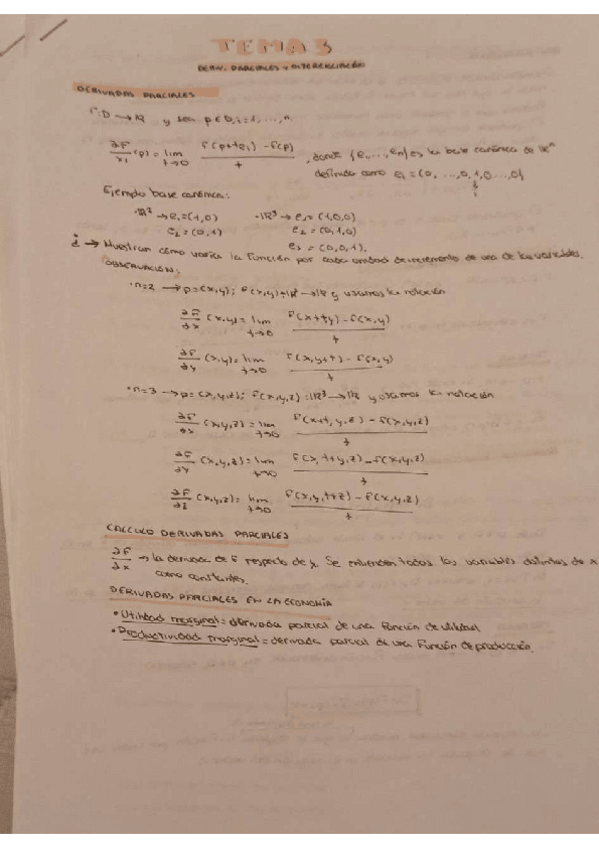 TEMA 3
DERIV. PARCIALES Y DIFERENCIACIÓN
DERIVADAS PARCIALES
F:D → IR y sea p ∈ D, i=1,...,n.
∂F/xi (p) = lim t→0 F(p+tei) - F(p) / t , donde {e1,...,en} es la base canónica de IRⁿ
definida como ei = (0, ...,0,1,0...,0)
i
Ejemplo base canónica:
·IR² → e1=(1,0) ·IR³ → e1=(1,0,0)
e2=(0,1) e2=(0,1,0)
e3=(0,0,1).
→ Muestran cómo varía la función por cada unidad de incremento de una de las variables.
OBSERVACIÓN:
·n=2 → p=(x,y); F(x,y):IR² → IR y usamos la notación
∂F/∂x (x,y) = lim t→0 F(x+t,y) - F(x,y) / t
∂F/∂y (x,y) = lim t→0 F(x,y+t) - F(x,y) / t
·n=3 → p=(x,y,z); F(x,y,z):IR³ → IR y usamos la notación
∂F/∂x (x,y,z) = lim t→0 F(x+t,y,z) - F(x,y,z) / t
∂F/∂y (x,y,z) = lim t→0 F(x,t+y,z) - F(x,y,z) / t
∂F/∂z (x,y,z) = lim t→0 F(x,y,t+z) - F(x,y,z) / t
CALCULO DERIVADAS PARCIALES
∂F/∂x → la derivada de F respecto de x. Se entienden todas las variables distintas de x
como constantes.
DERIVADAS PARCIALES EN LA ECONOMÍA
·Utilidad marginal = derivada parcial de una función de utilidad
·Productividad marginal = derivada parcial de una función de producción.